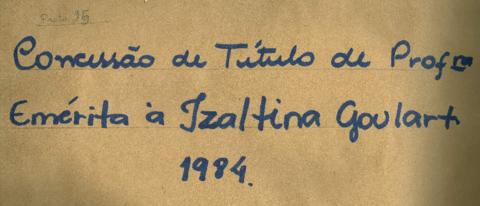 Pasta 95
Concessão de Título de Profra
Emérita à Izaltina Goulart
1984.